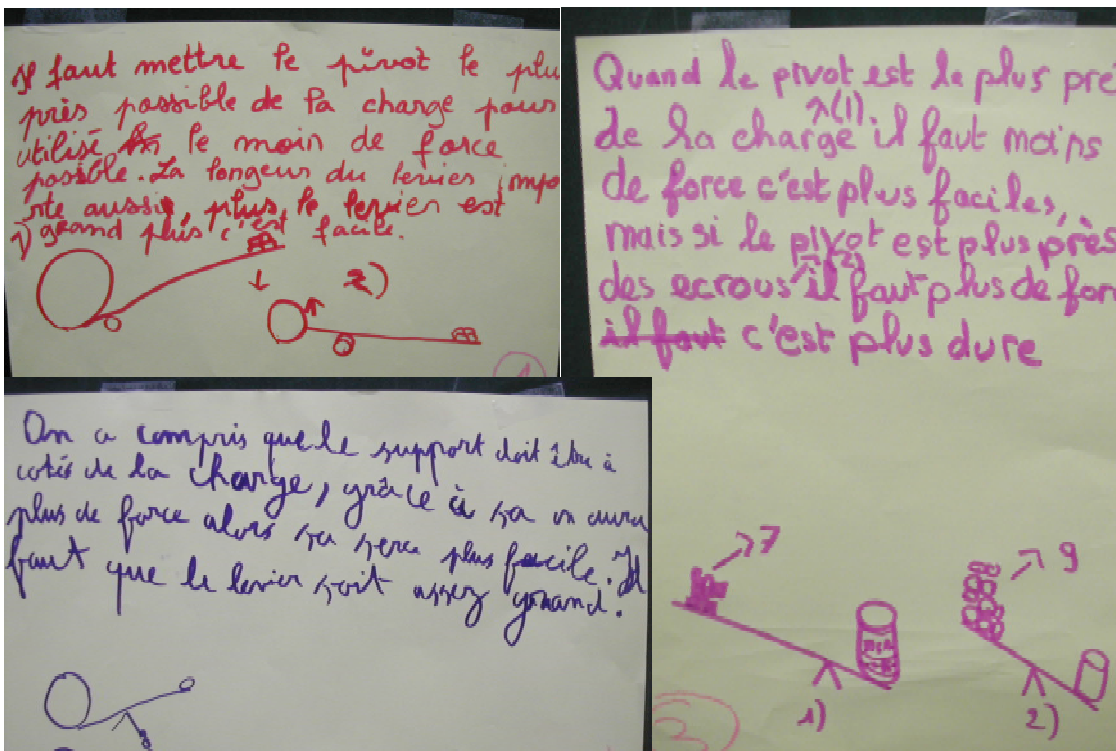 Il faut mettre le pivot le plu
près possible de la charge pour
utilisé le moin de force
possible. La longeur du levier impo
rte aussi, plus le levier est
grand plus c'est facile.
1)
2)
1
Quand le pivot est le plus prè
de la charge (1). il faut moins
de force c'est plus faciles,
mais si le pivot est plus près
des ecrous (2) il faut plus de for
il faut c'est plus dure
On a compris que le support doit être à
cotés de la charge, grâce à sa on aura
plus de force alors sa sera plus facile. Il
faut que le levier soit assez grand.
7
9
1)
2)
3